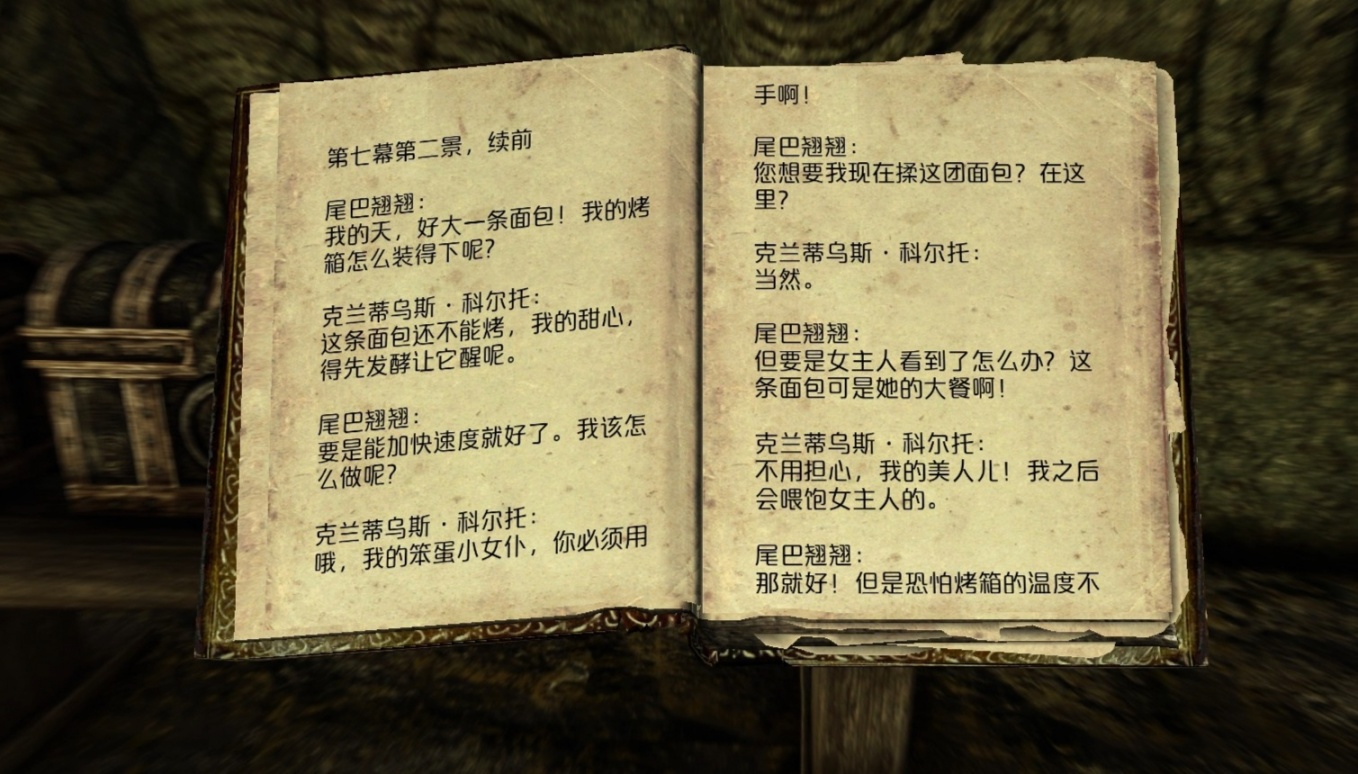 第七幕第二景，续前
尾巴翘翘：
我的天，好大一条面包！我的烤
箱怎么装得下呢？
克兰蒂乌斯·科尔托：
这条面包还不能烤，我的甜心，
得先发酵让它醒呢。
尾巴翘翘：
要是能加快速度就好了。我该怎
么做呢？
克兰蒂乌斯·科尔托：
哦，我的笨蛋小女仆，你必须用
手啊！
尾巴翘翘：
您想要我现在揉这团面包？在这
里？
克兰蒂乌斯·科尔托：
当然。
尾巴翘翘：
但要是女主人看到了怎么办？这
条面包可是她的大餐啊！
克兰蒂乌斯·科尔托：
不用担心，我的美人儿！我之后
会喂饱女主人的。
尾巴翘翘：
那就好！但是恐怕烤箱的温度不